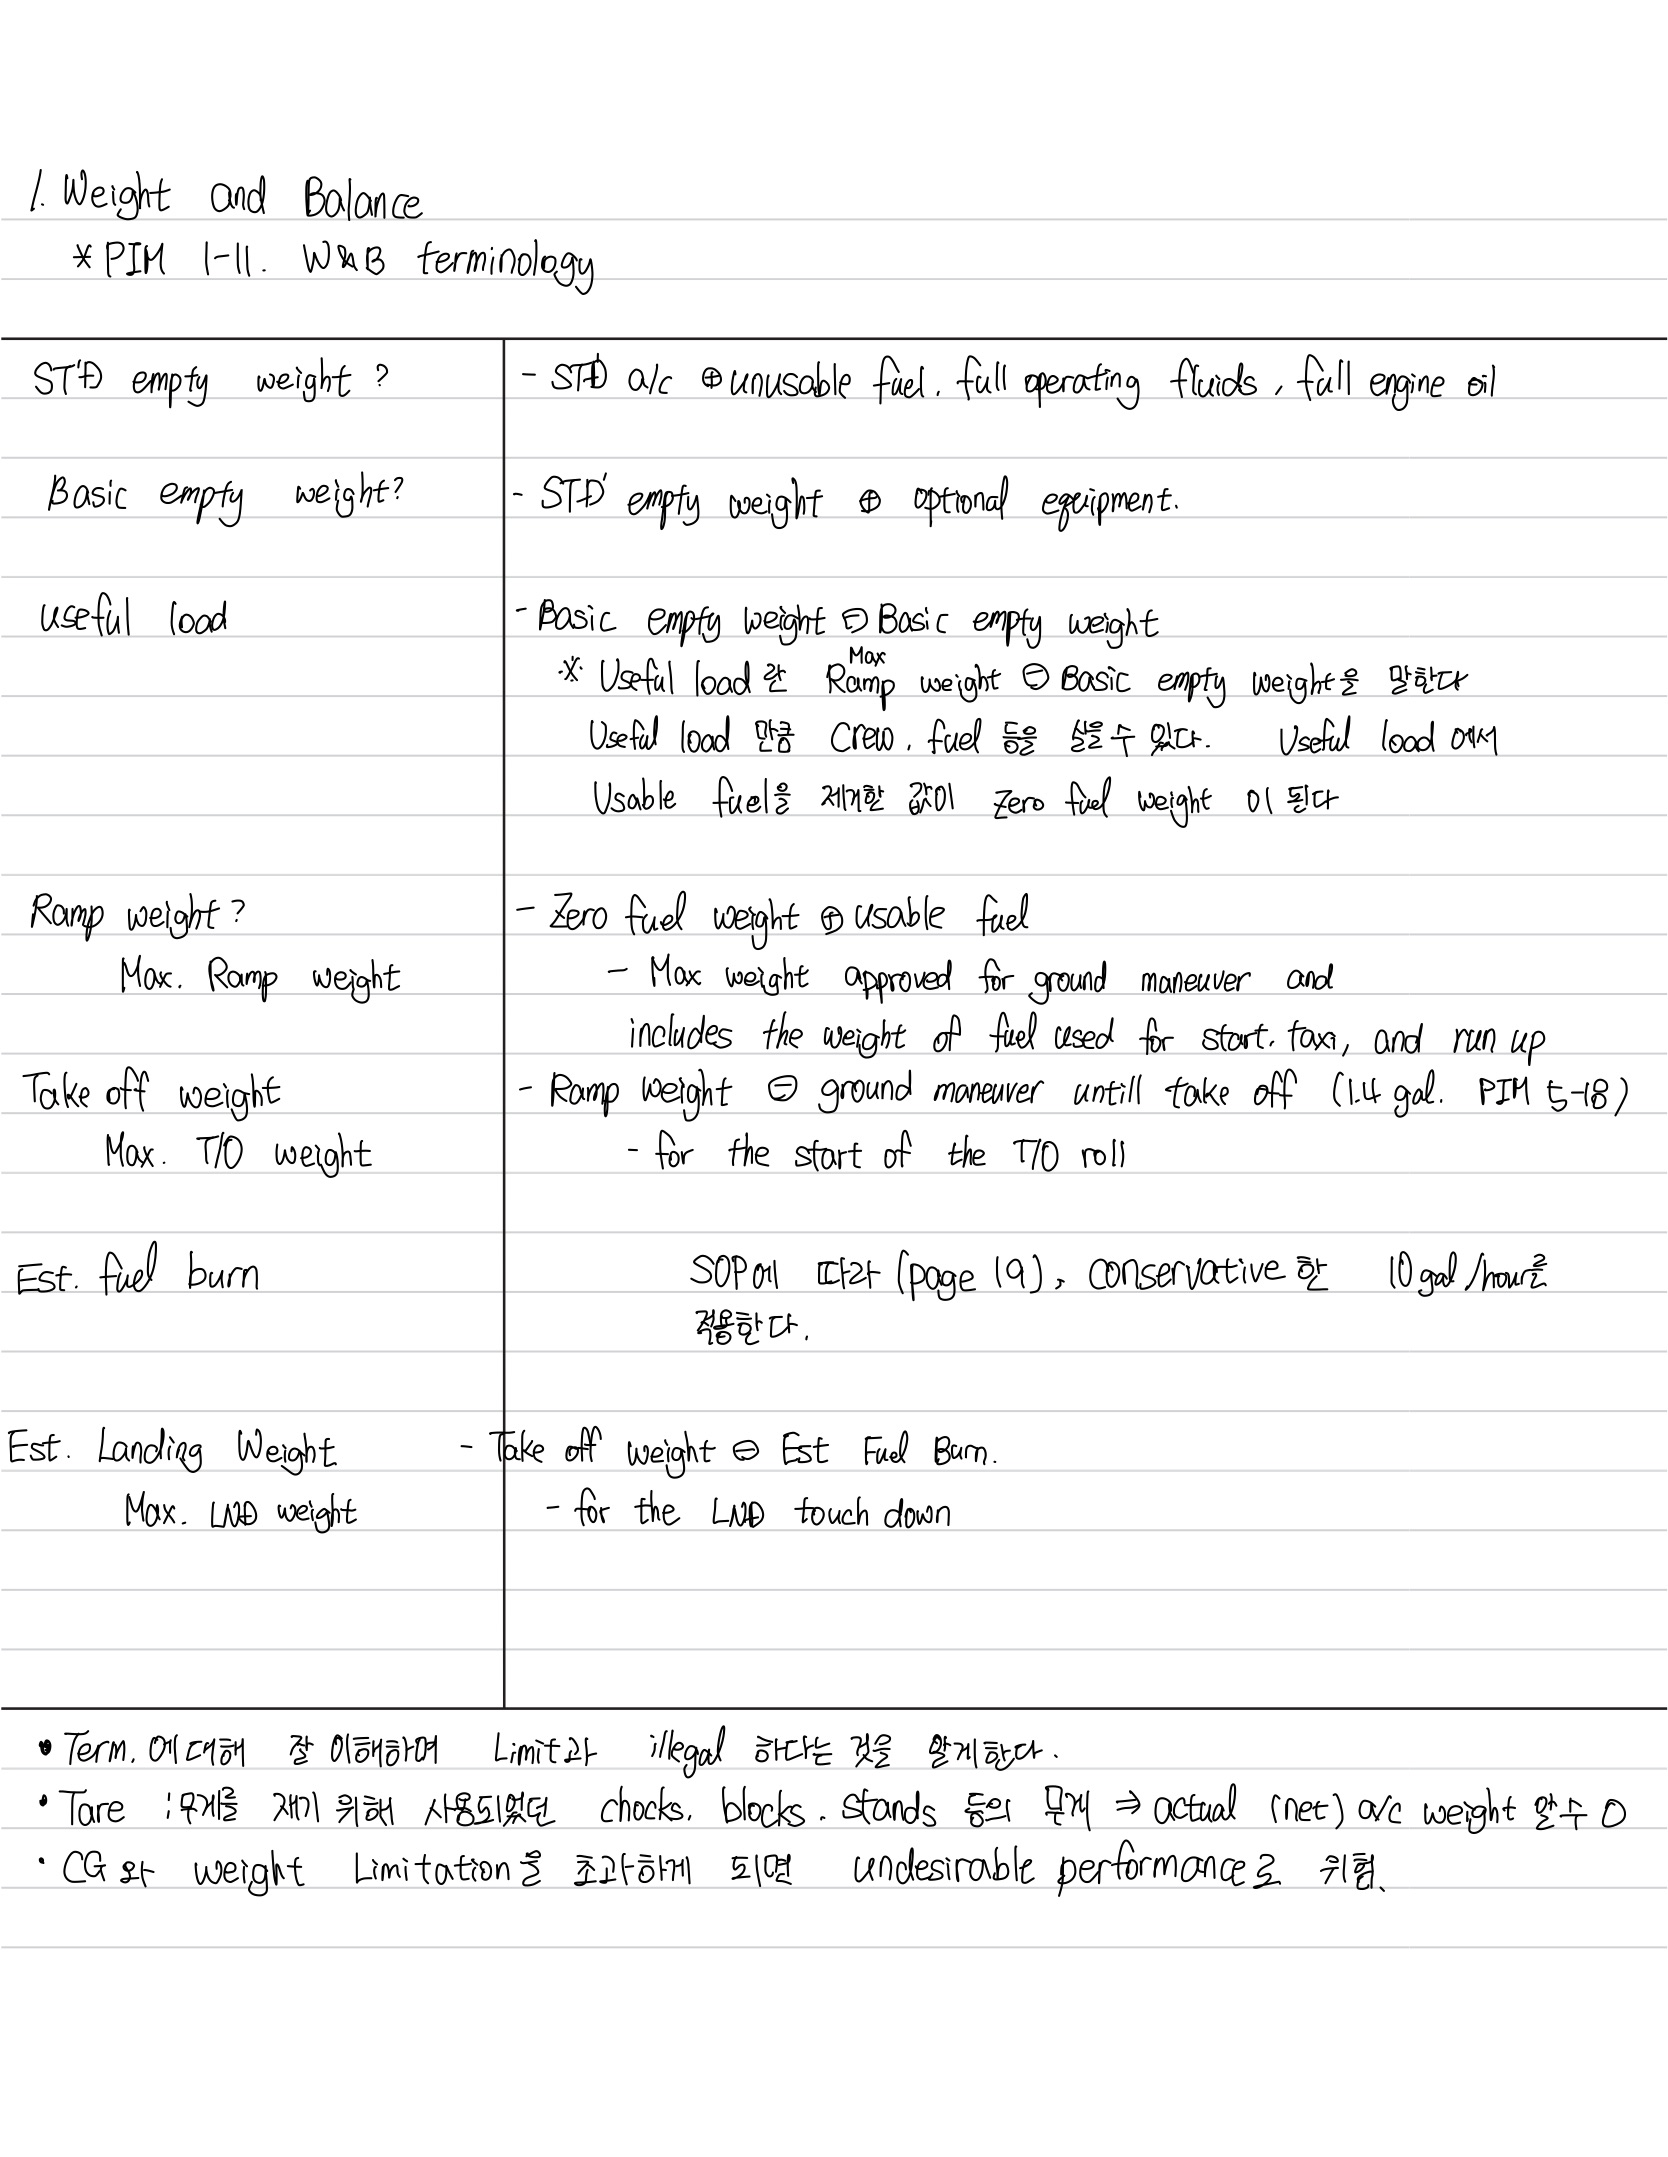 1. Weight and Balance
* PIM 1-11. W&B terminology
STD empty weight ? - STD a/c ⊕ unusable fuel. full operating fluids, full engine oil
Basic empty weight? - STD empty weight ⊕ optional equipment.
useful load - Basic empty weight ⊖ Basic empty weight
※ Useful load란 Max Ramp weight ⊖ Basic empty weight을 말한다
Useful load 만큼 Crew, fuel 등을 실을 수 있다. Useful load 에서
Usable fuel을 제거한 값이 Zero fuel weight 이 된다
Ramp weight? - Zero fuel weight ⊕ usable fuel
Max. Ramp weight - Max weight approved for ground maneuver and
includes the weight of fuel used for start. taxi, and run up
Take off weight - Ramp weight ⊖ ground maneuver untill take off (1.4 gal. PIM 5-18)
Max. T/O weight - for the start of the T/O roll
Est. fuel burn SOP에 따라 (page 19), conservative 한 10 gal/hour를
적용한다.
Est. Landing Weight - Take off weight ⊖ Est Fuel Burn.
Max. LND weight - for the LND touch down
• Term. 에 대해 잘 이해하며 Limit과 illegal 하다는 것을 알게한다.
• Tare : 무게를 재기 위해 사용되었던 chocks, blocks, stands 등의 무게 ⇒ actual (net) a/c weight 알 수 O
• CG 와 weight Limitation을 초과하게 되면 undesirable performance로 위험.